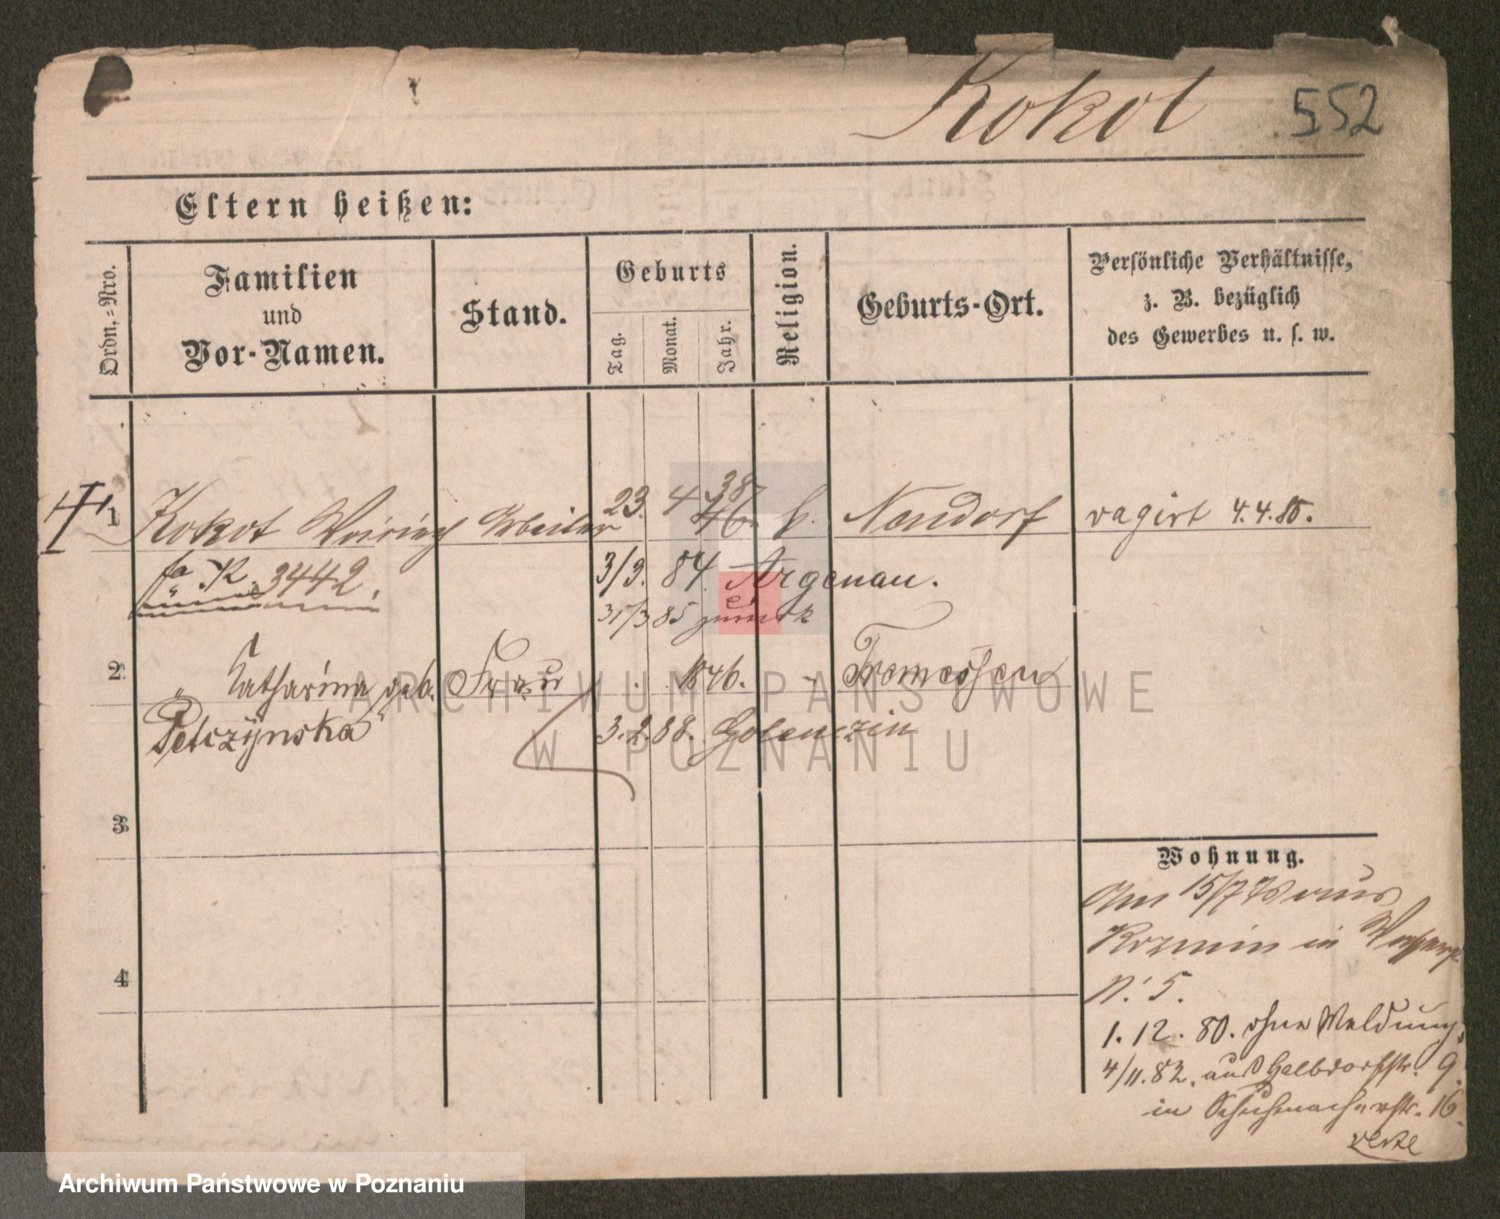 Kokot 552
Eltern heißen:
Ordn.-Nro.
Familien
und
Vor-Namen.
Stand.
Geburts
Tag. Monat. Jahr.
Religion.
Geburts-Ort.
Persönliche Verhältnisse,
z. B. bezüglich
des Gewerbes u. s. w.
38
1 Kokot Arbeiter 23. 4 46. k. Neudorf vagirt 4.4.85.
fa R. 3442. 3/9. 84. Argenau.
31/3 85 zurück
2. " Catharina geb. Frau 1846. " Tremessen
Petczynska 3.2.88. Golenczin
3.
4
Wohnung.
Am 15/7 78 aus
Kozmin in
N. 5.
1. 12. 80. ohne Meldung.
4/11.82. aus Halbdorfstr. 9.
in Schuhmacherstr. 16.
verte
ARCHIWUM PAŃSTWOWE
W POZNANIU
Archiwum Państwowe w Poznaniu